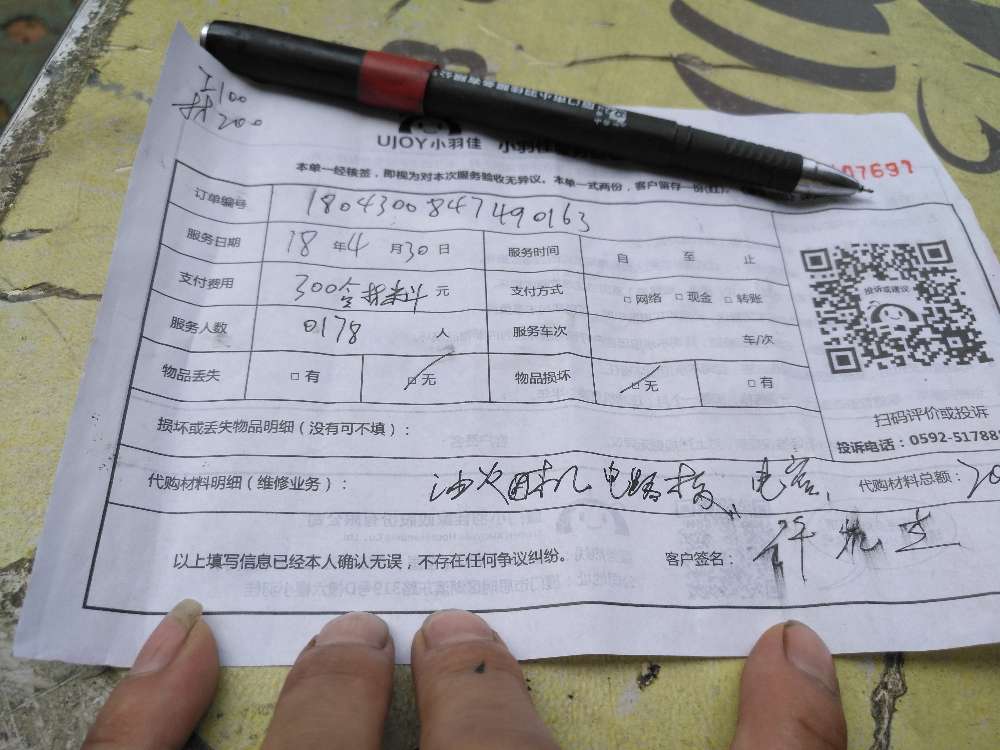 工100
材200
UJOY小羽佳 小羽佳
07697
本单一经核签，即视为对本次服务验收无异议。本单一式两份，客户留存一份(红)，
订单编号 1804300847490163
服务日期 18 年 4 月 30 日 服务时间 自 至 止
支付费用 300含材料 元 支付方式 □ 网络 □ 现金 □ 转账
服务人数 0178 人 服务车次 车/次
物品丢失 □ 有 □ 无 物品损坏 □ 无 □ 有
投诉或建议
扫码评价或投诉
投诉电话：0592-51788
损坏或丢失物品明细（没有可不填）：
代购材料明细（维修业务）： 油烟机电路板 电容, 代购材料总额：20
以上填写信息已经本人确认无误，不存在任何争议纠纷。 客户签名： 许先生